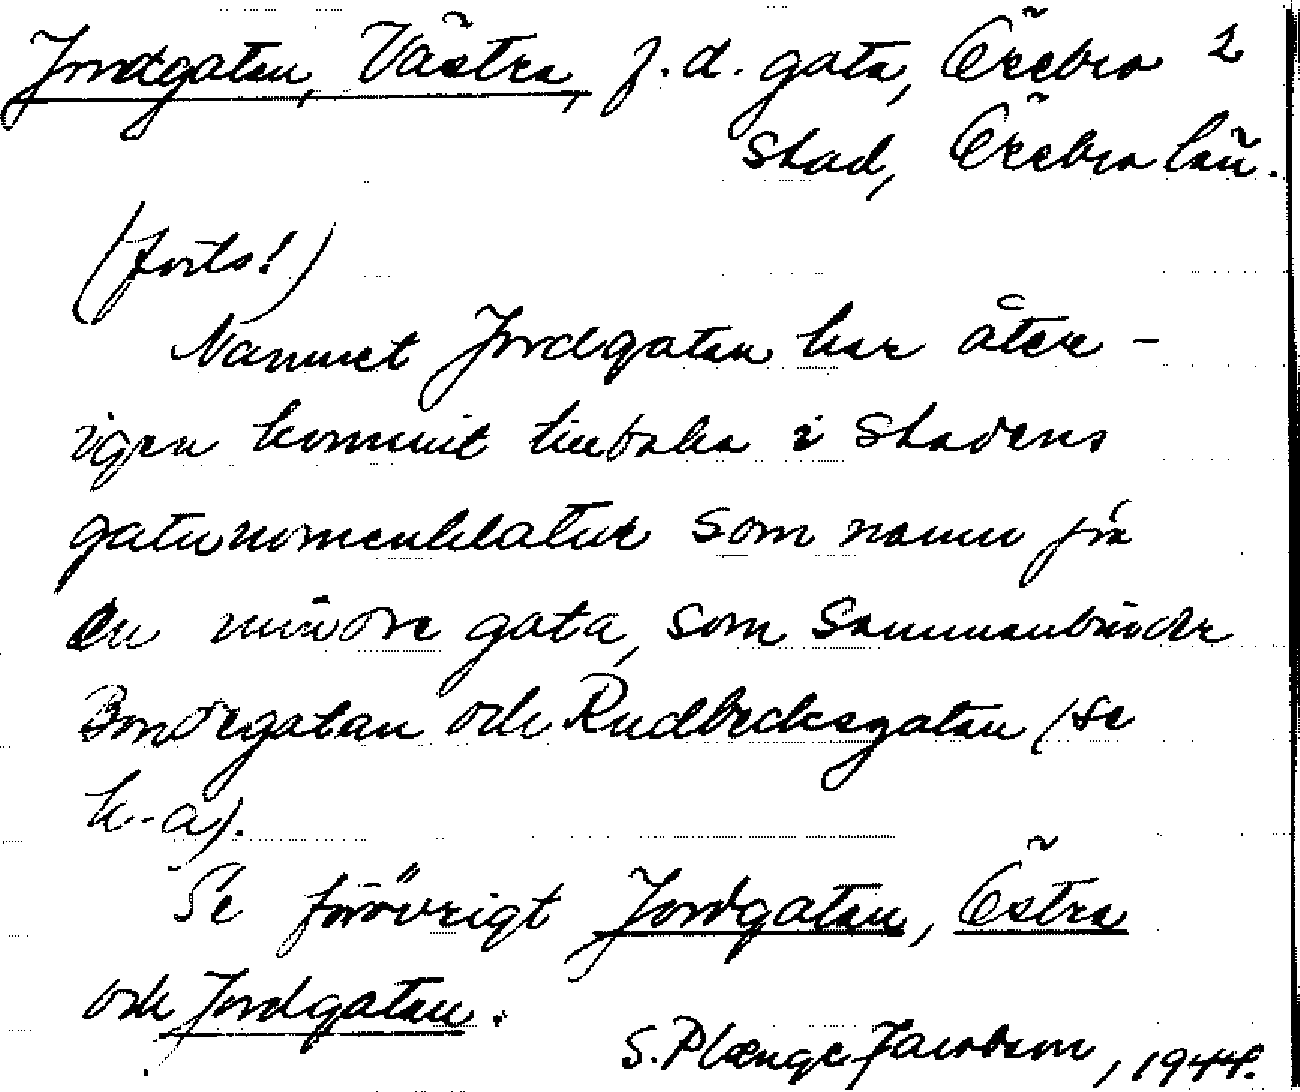 Jordgatan, Västra, f.d. gata, Örebro 2
stad, Örebro län.
(forts!)
Namnet Jordgatan har åter-
igen kommit tillbaka i stadens
gatunomenklatur som namn på
en mindre gata, som sammanbinder
Bondegatan och Rudbecksgatan (se
k-a).
Se förövrigt Jordgatan, Östra
och Jordgatan.
S. Plænge Jacobson, 1944.